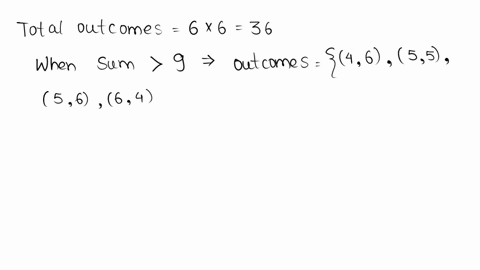 Total outcomes = 6 × 6 = 36
When sum > 9 ⇒ outcomes = {(4,6), (5,5),
(5,6), (6,4)